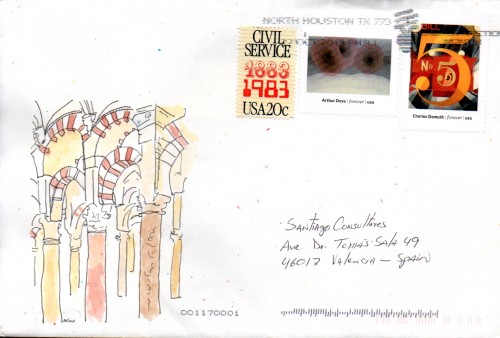 NORTH HOUSTON TX 773
CIVIL
SERVICE
1883
1983
USA 20c
Arthur Dove | forever | USA
BILL
5
No 5
Charles Demuth | forever | USA
Santiago Consultores
Ave. Dr. Tomás Sala 49
46017 Valencia - Spain
001170001